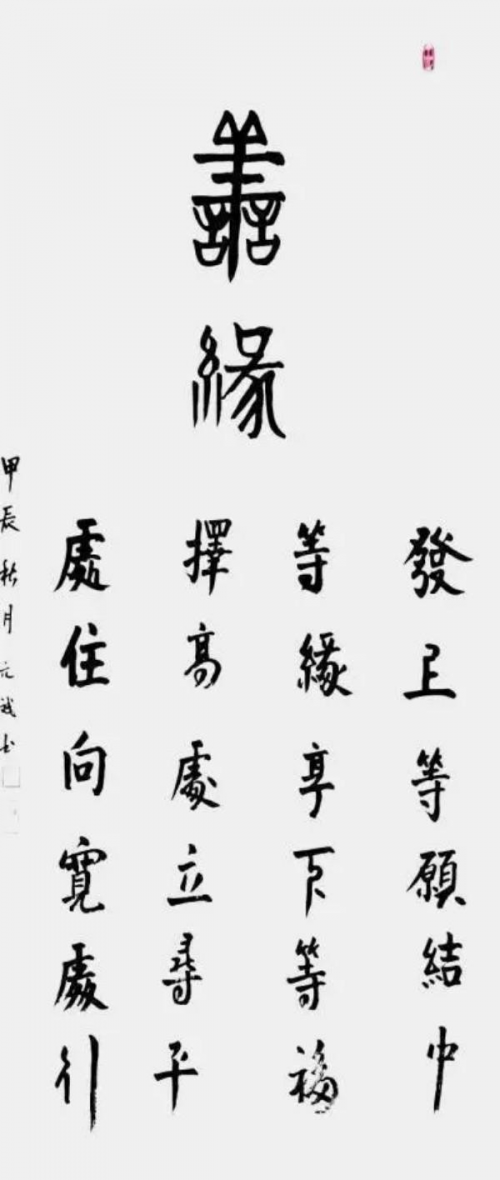 善
緣
發上等願結中
等緣享下等福
擇高處立尋平
處住向寬處行
甲辰秋月元誠書